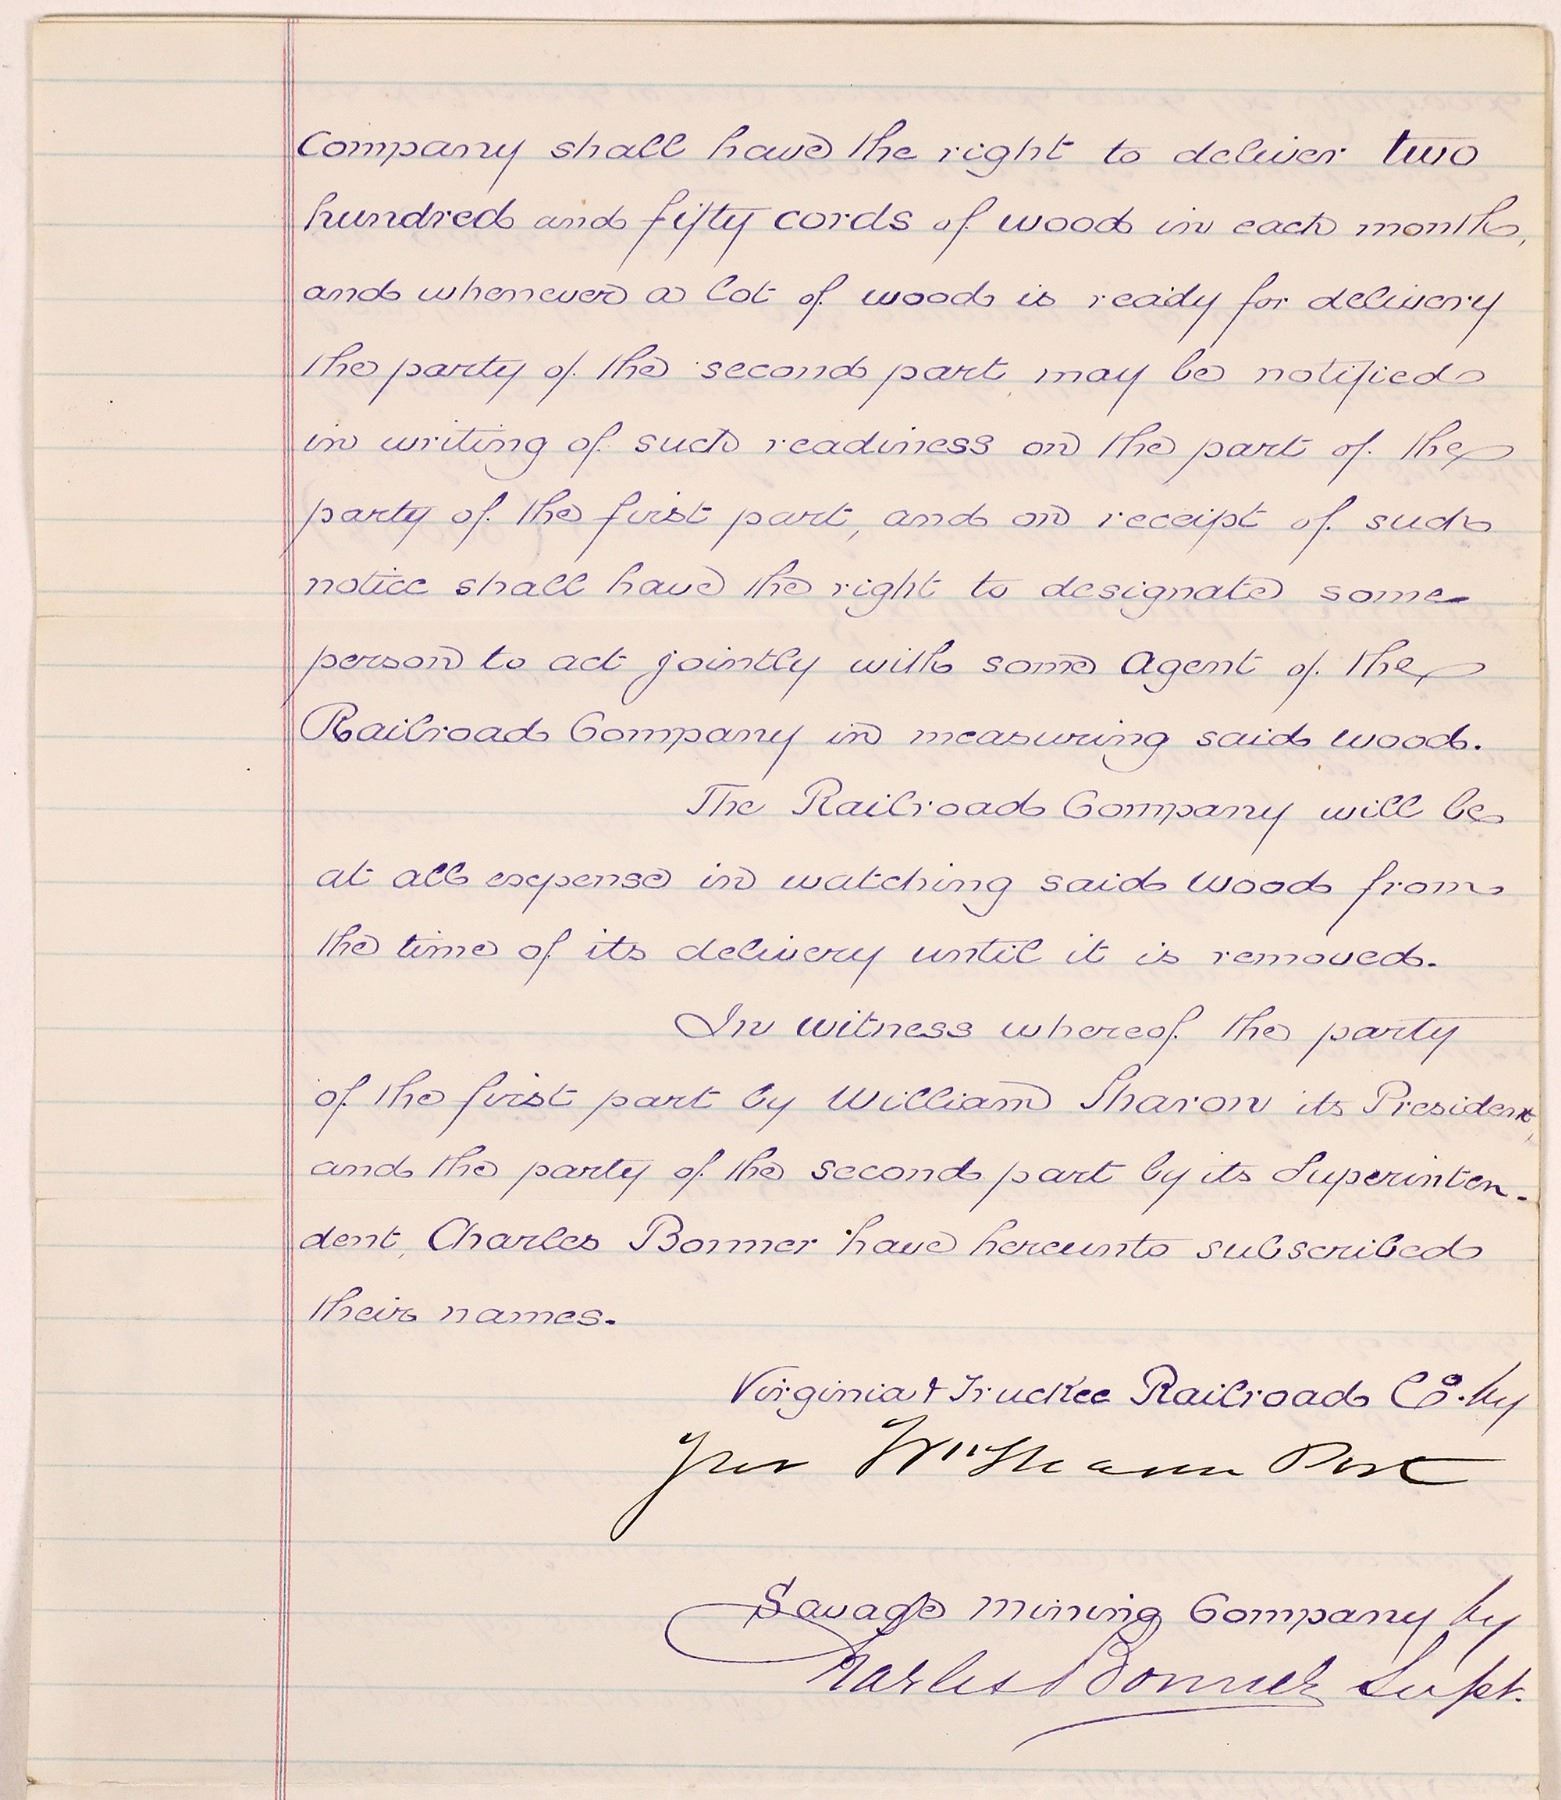 Company shall have the right to deliver two
hundred and fifty cords of wood in each month,
and whenever a lot of wood is ready for delivery
the party of the second part may be notified
in writing of such readiness on the part of the
party of the first part, and on receipt of such
notice shall have the right to designate some
person to act jointly with some Agent of the
Railroad Company in measuring said wood.
The Railroad Company will be
at all expense in watching said wood from
the time of its delivery until it is removed.
In witness whereof the party
of the first part by William Sharon its President,
and the party of the second part by its Superinten-
dent, Charles Bonner have hereunto subscribed
their names.
Virginia & Truckee Railroad Co. by
Wm Sharon Prest
Savage Mining Company by
Charles Bonner Supt.